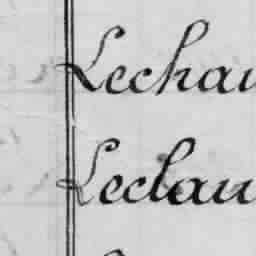 Lechau
Leclau